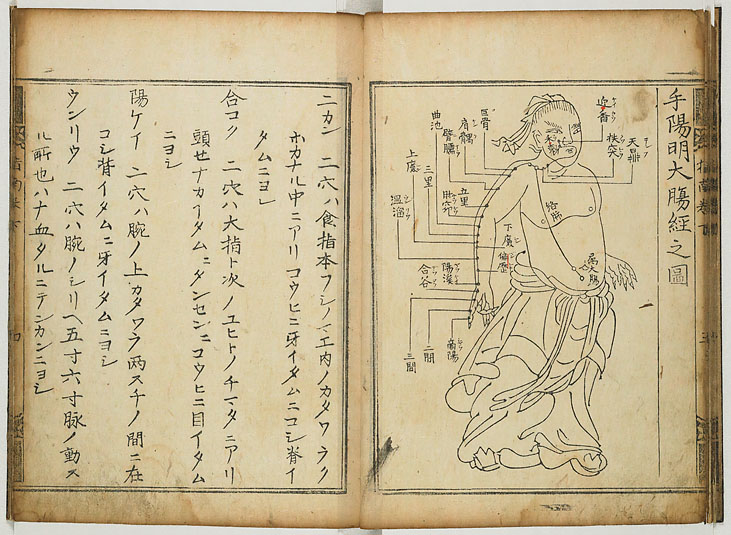 手陽明大膓經之圖
天鼎
迎香
扶突
巨骨
肩髃
臂臑
曲池
五里
肘窌
三里
上廉
温溜
下廉
偏歴
陽谿
合谷
商陽
二間
三間
絡肺
属大膓
ニカン 二穴ハ食指本フシノマエ内ノカタワラク
ホカナル中ニアリコウヒニ牙イタムニコシ脊イ
タムニヨシ
合コク 二穴ハ大指ト次ノユヒトノチマタニアリ
頭セナカイタムニタンセンニコウヒニ目イタム
ニヨシ
陽ケイ 二穴ハ腕ノ上カタワラ两スチノ間ニ在
コシ脊イタムニ牙イタムニヨシ
ウンリウ 二穴ハ腕ノシリヘ五寸六寸脉ノ動ス
ル所也ハナ血タルニテンカンニヨシ